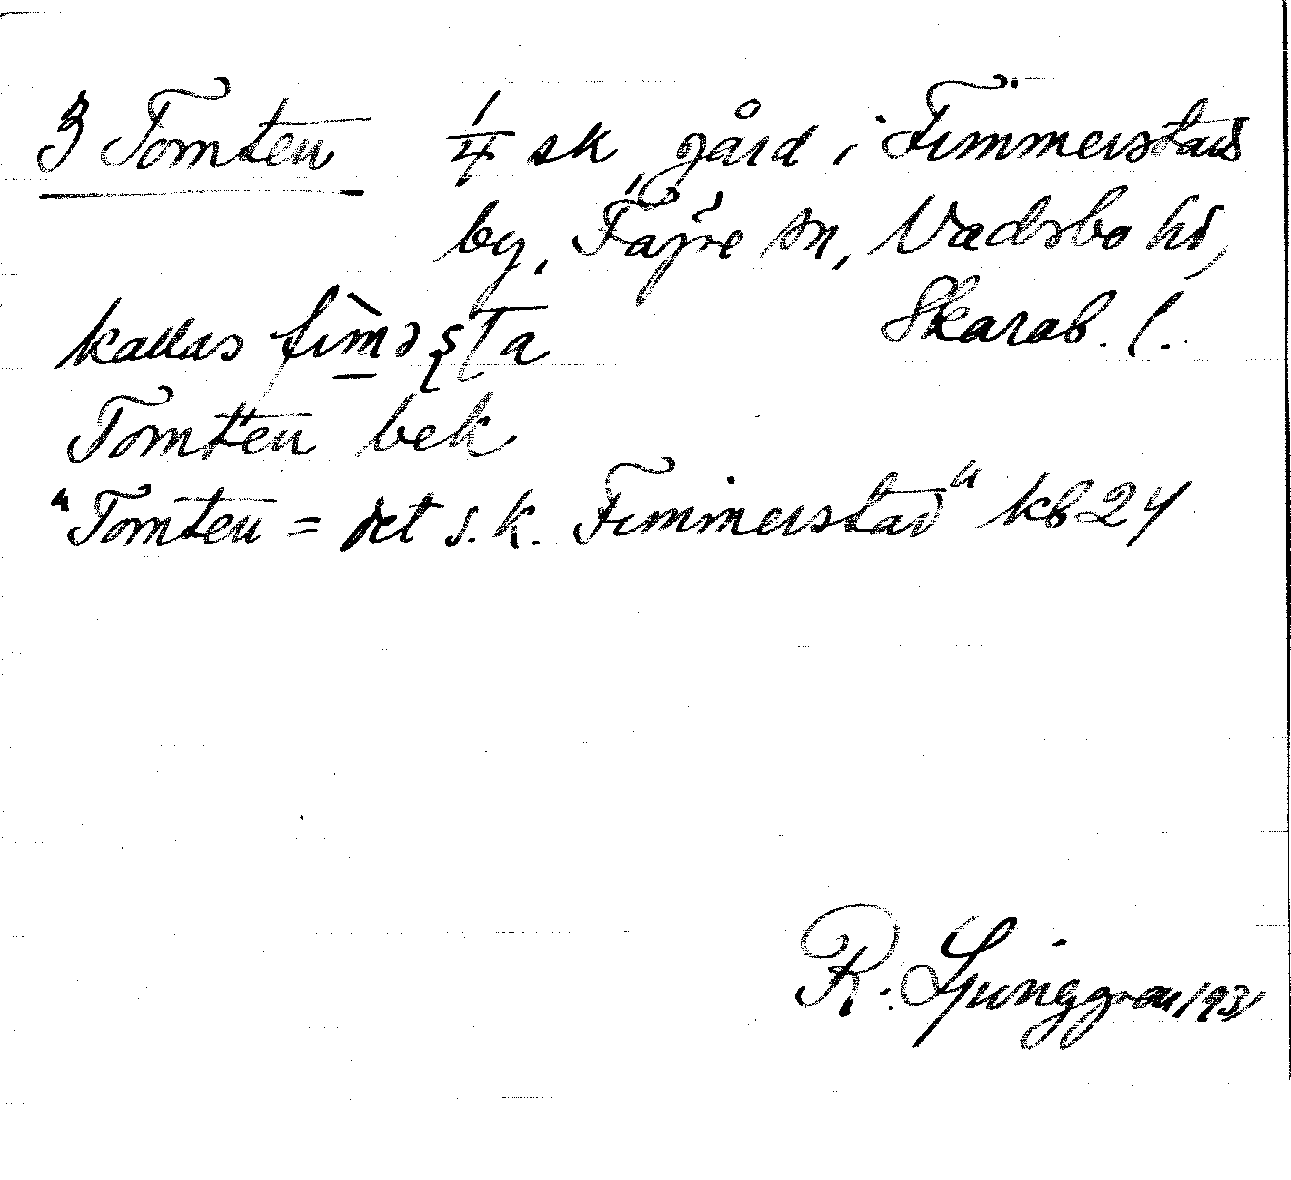 3 Tomten 1/4 sk gård i Fimmerstads
by, Fägre sn, Vadsbo hd,
Skarab. l.
kallas
Tomten bek
"Tomten = det s.k. Fimmerstad" kb 24
R. Ljunggren 193